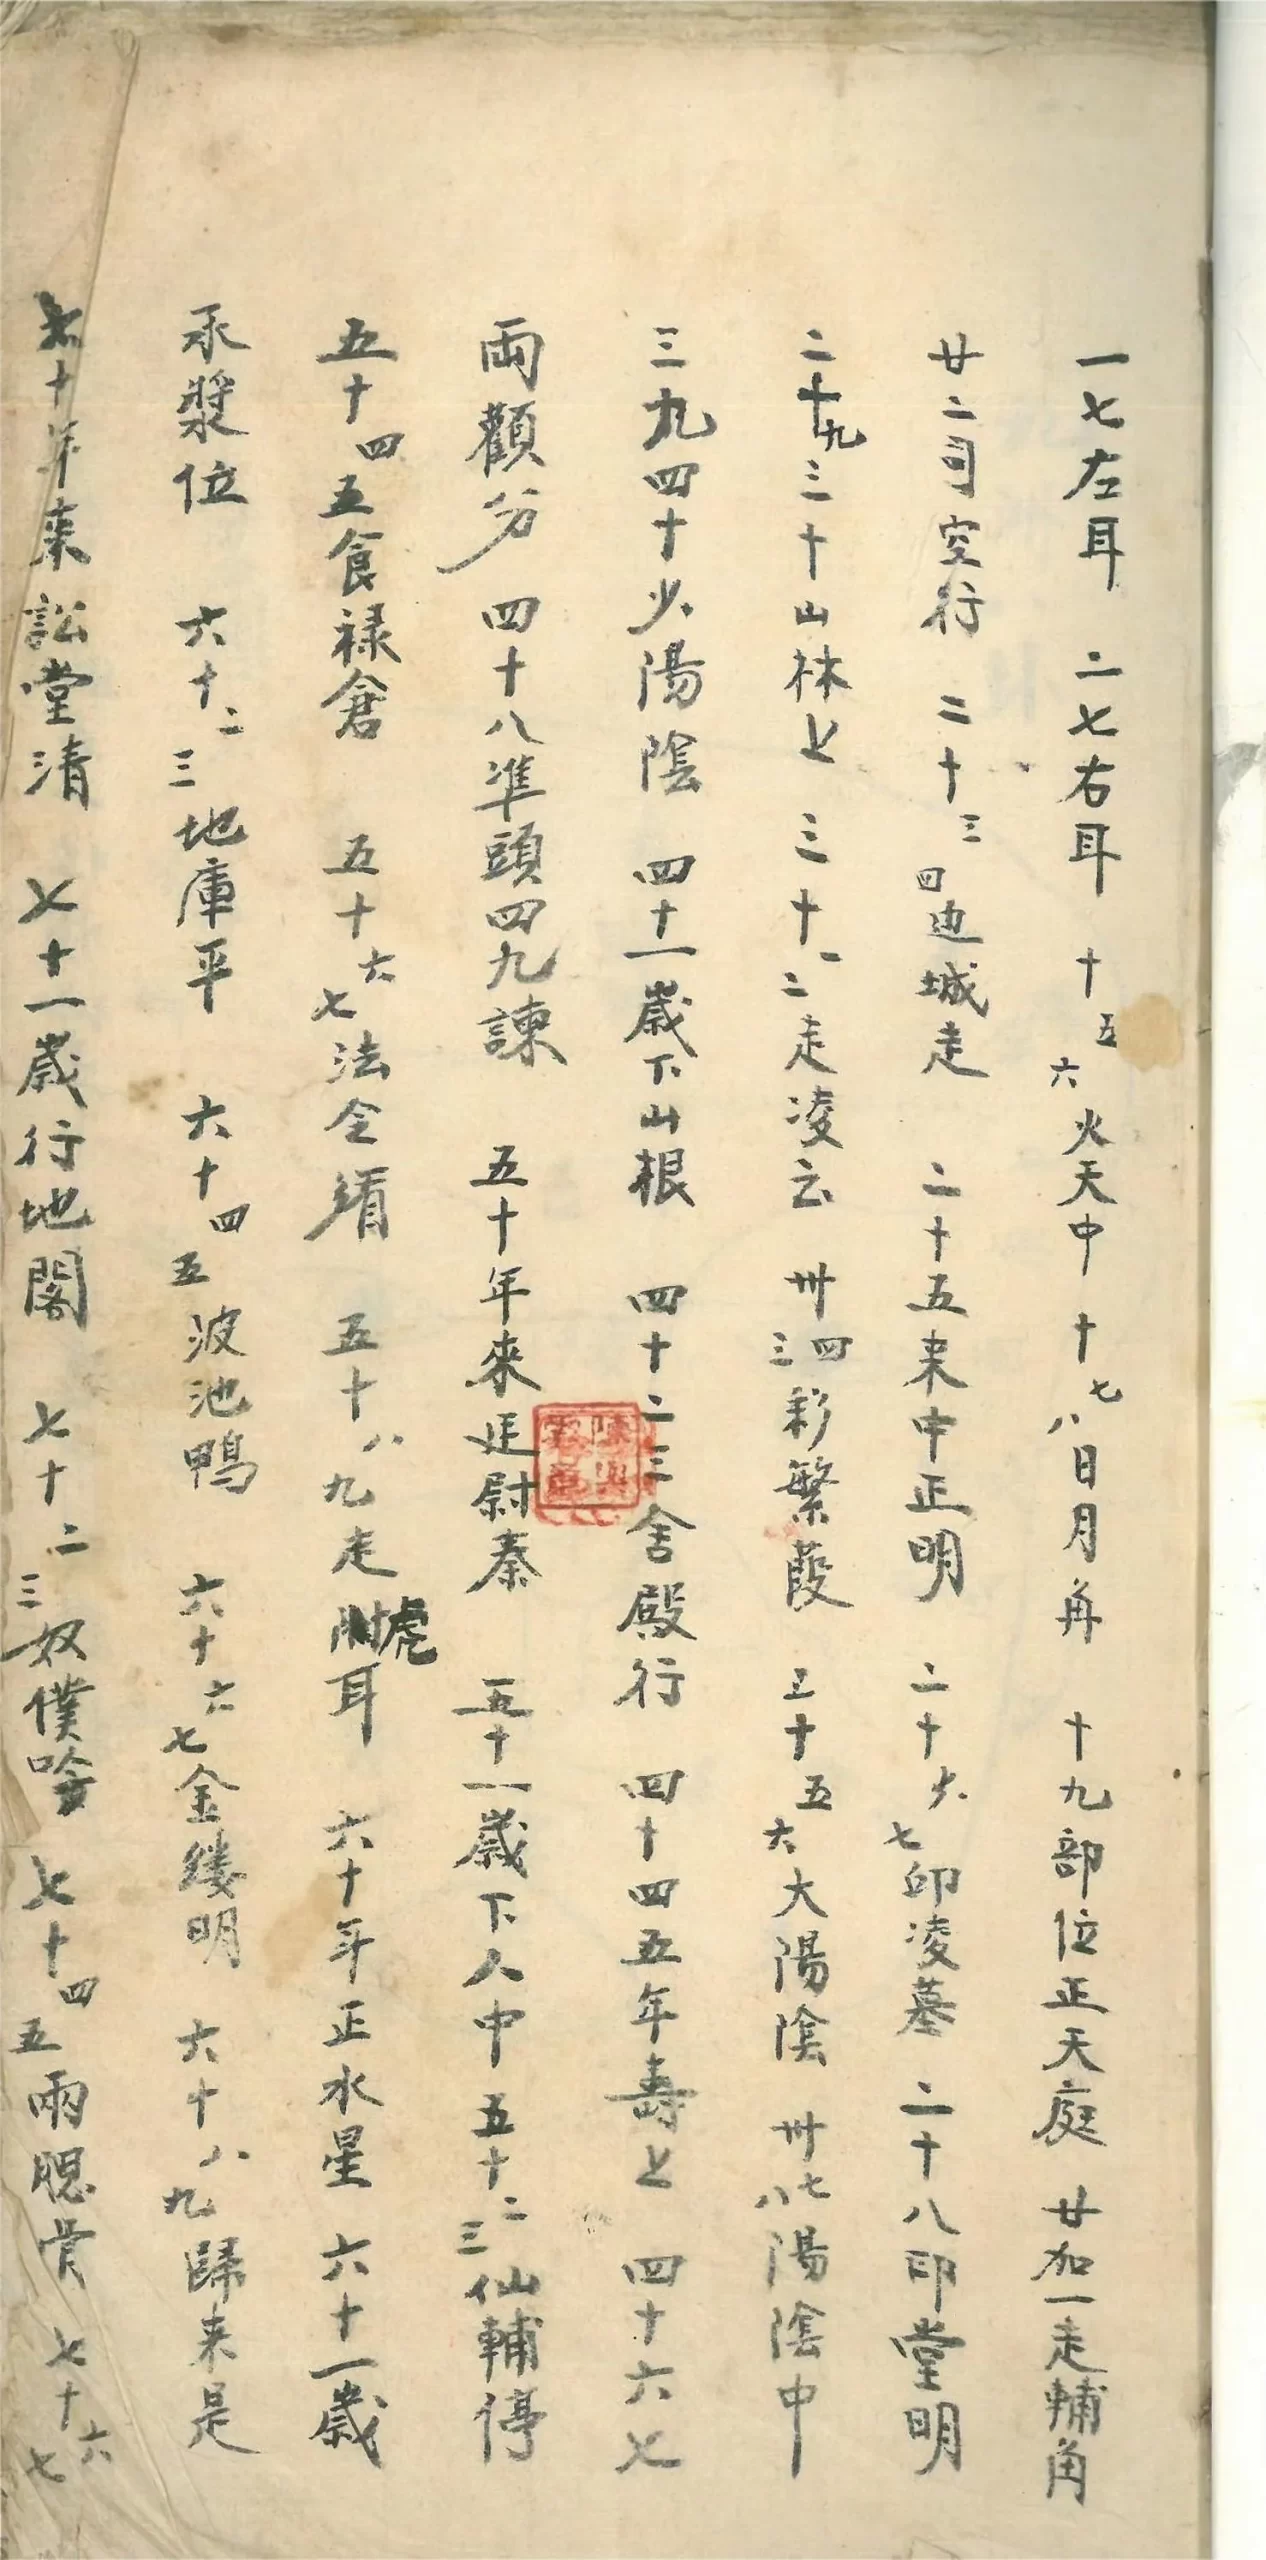 一七左耳 二七右耳 十五六火天中 十七八日月角 十九部位正天庭 廿加一走輔角
廿二司空行 二十三四边城走 二十五来中正明 二十六七印凌墓 二十八印堂明
二十九三十山林上 三十一二走凌云 卅三四彩繁葭 三十五六大陽陰 卅七八陽陰中
三九四十少陽陰 四十一歲下山根 四十二三舍殿行 四十四五年壽上 四十六七
両顴分 四十八準頭四九諫 五十年來廷尉秦 五十一歲下人中 五十二三仙輔停
五十四五食禄倉 五十六七法令 五十八九走虎耳 六十年正水星 六十一歲
承漿位 六十二三地庫平 六十四五波池鴨 六十六七金缕明 六十八九歸来是
七十年来訟堂清 七十一歲行地閣 七十二三奴僕 七十四五兩腮 七十六七